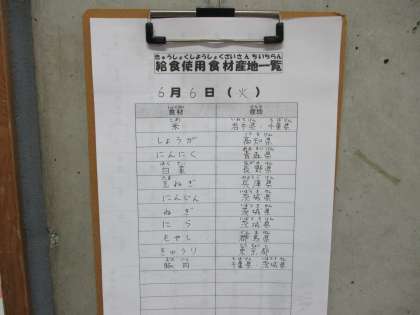 きゅうしょくしようしょくざいさんちいちらん
給食使用食材産地一覧
6月6日(火)
食材 産地
米 岩手県 千葉県
しょうが 高知県
にんにく 青森県
白菜 長野県
玉ねぎ 兵庫県
にんじん 茨城県
ねぎ 茨城県
にら 茨城県
もやし 群馬県
きゅうり 東京都
豚肉 千葉県 茨城県